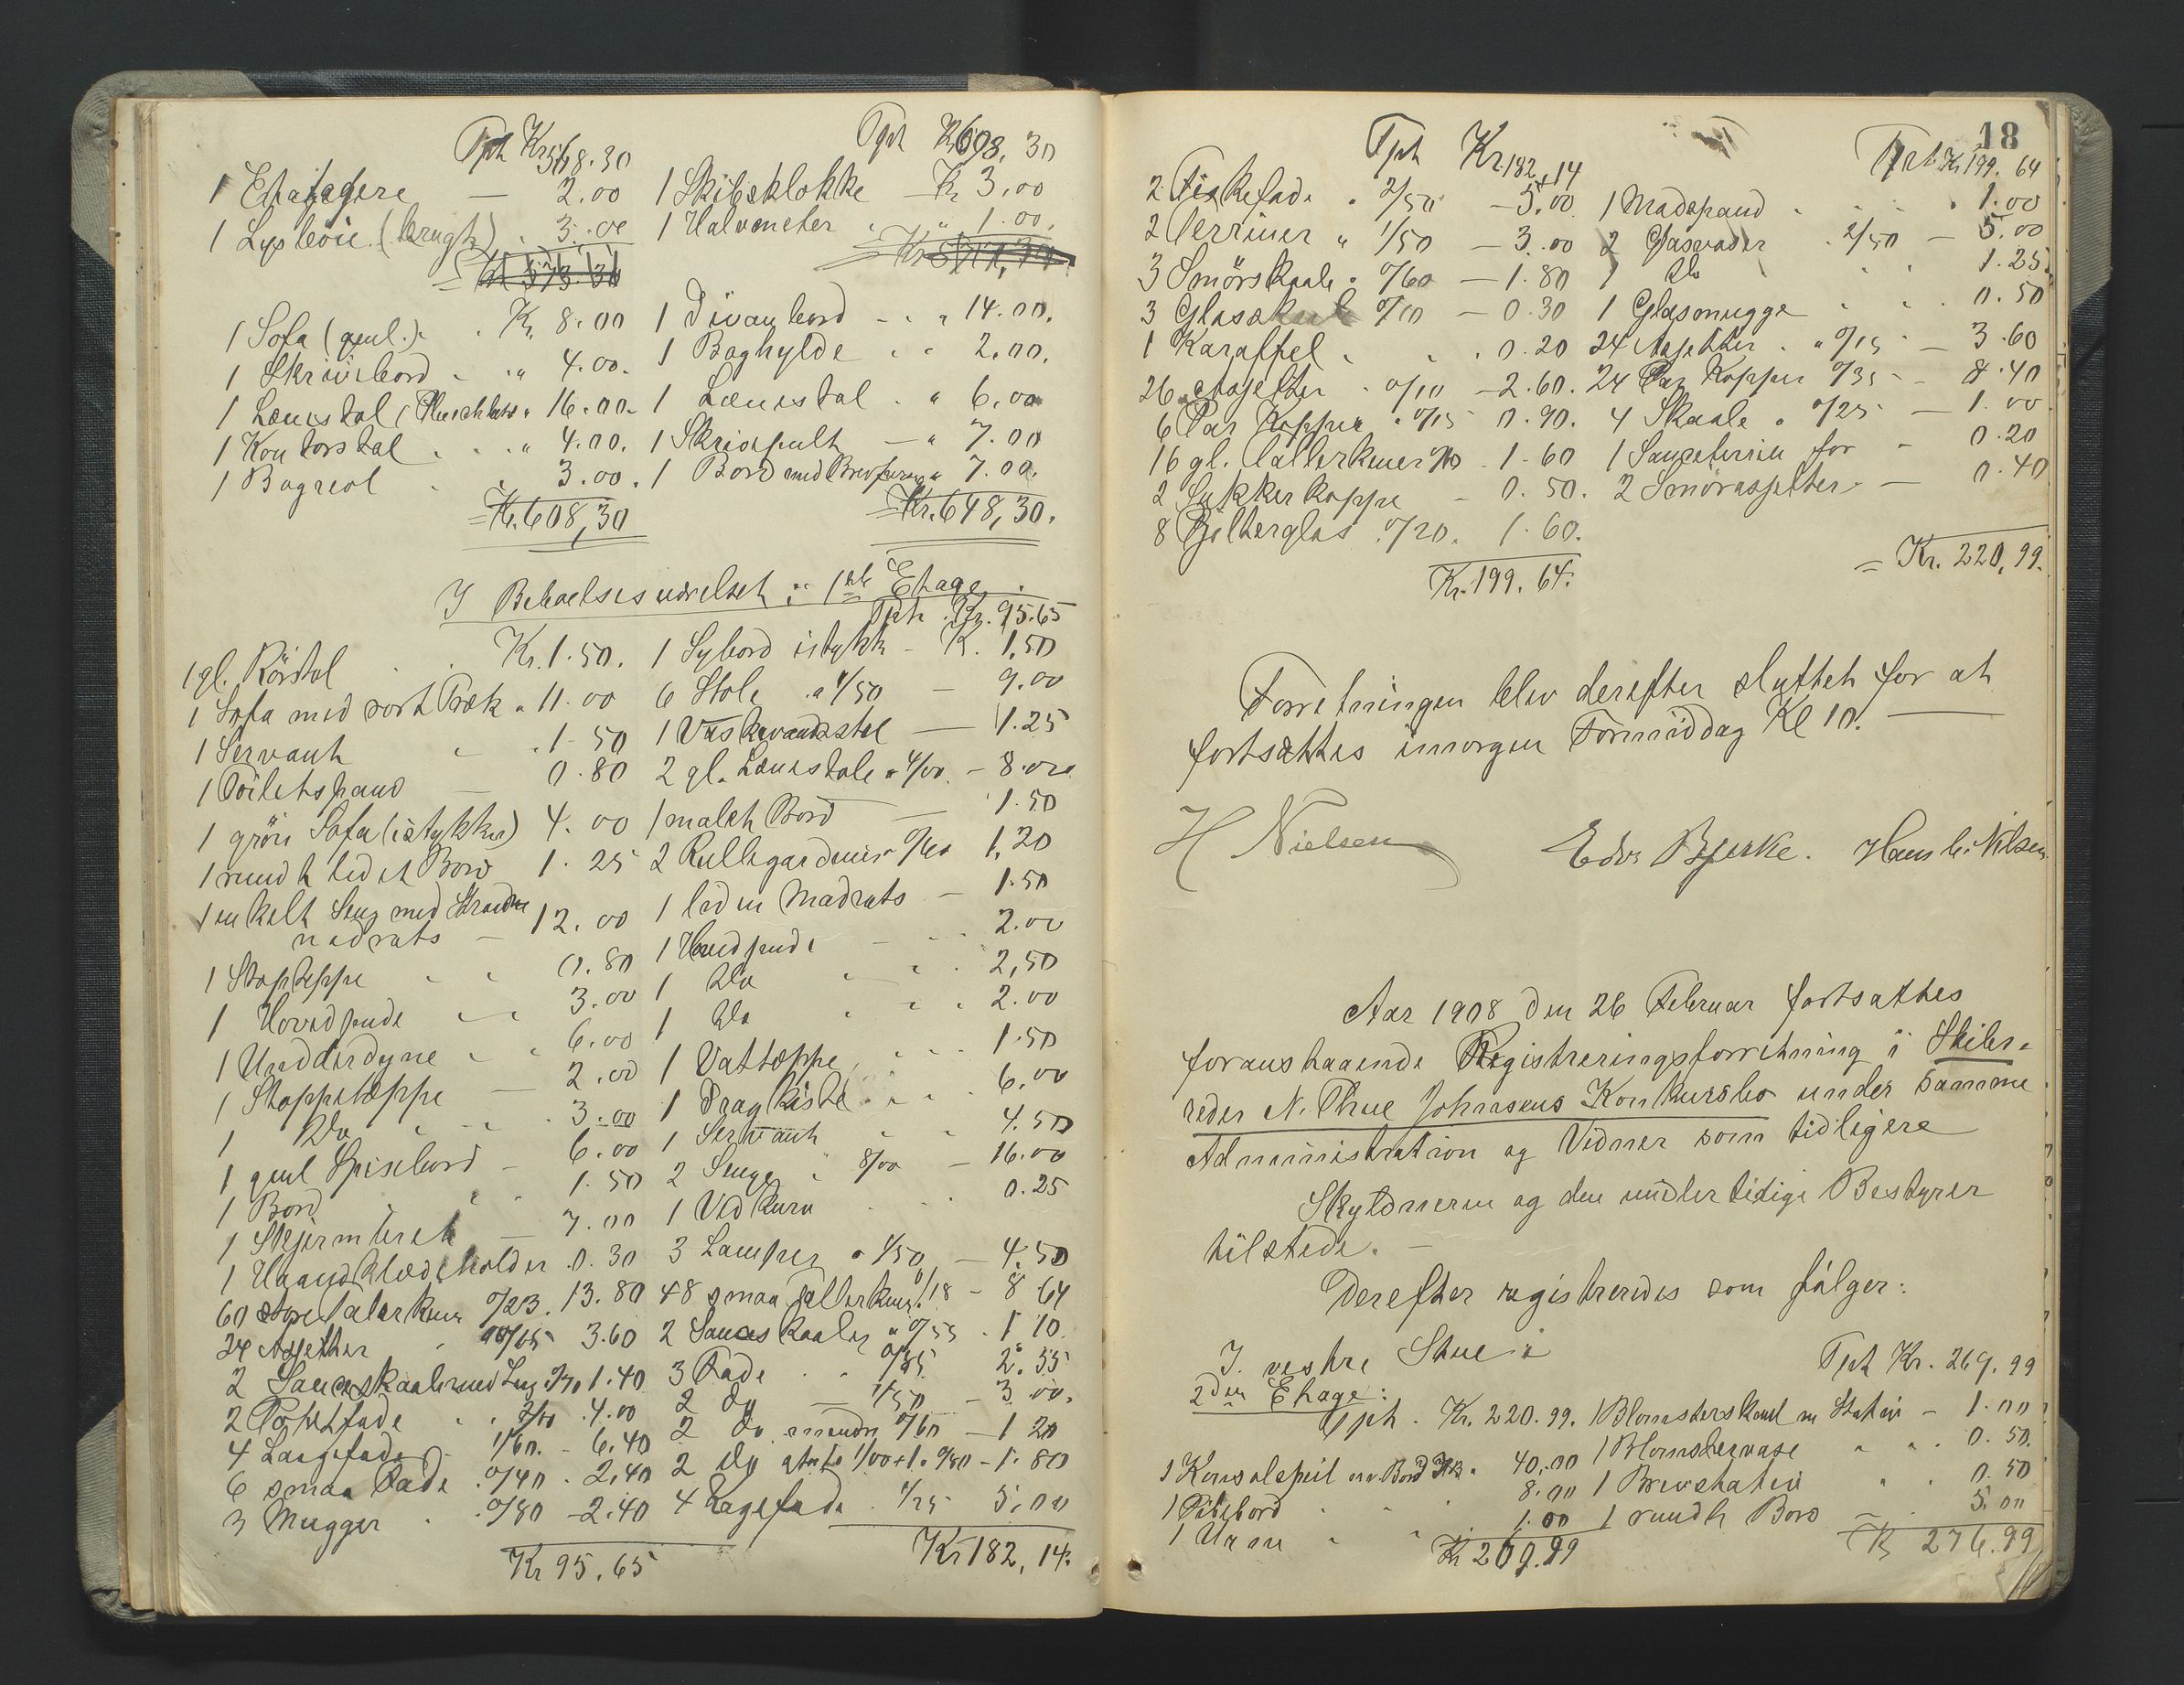 Tpt Kr 568.30
1 Etagere — 2.00
1 Lysbøie (brugt) 3.00
= Kr 573.30
1 Sofa (gml.) Kr 8.00
1 Skrivebord " 4.00.
1 Lænestol (Pluschbetr. " 16.00.
1 Kontorstol " 4.00.
1 Bogreol 3.00.
= Kr. 608,30
Tpt Kr 608,30
1 Skibsklokke — Kr 3,00
1 Halvmeter " 1.00.
1 Divanbord - " 14.00.
1 Boghylde " 2.00.
1 Lænestol " 6,00
1 Skrivepult — " 7.00
1 Bord med Brevpresse " 7.00.
= Kr. 648,30.
I Beboelsesværelset i 1ste Etage.
1 gl. Rörstol Kr. 1.50.
1 Sofa med sort Træk " 11.00
1 Servant 1.50
1 Toiletspand 0.80
1 grön Sofa (istykker) 4.00
1 rundt lidet Bord 1.25
1 enkelt Seng med Straa
madrats — 12.00
1 Stoptæppe 0.80
1 Hovedpude 3.00
1 Underdyne 6.00
1 Stoppetæppe — 2.00
1 Do 3.00
1 gml Spisebord - 6.00
1 Bord 1.50
1 Skjermbret — 7.00
1 Haandklædeholder 0.30
60 store Talerkener 0/23. 13.80
24 Asjetter 0/15 3.60
2 Sauceskaaler med Laag 0/70 1.40
2 Potetfade 2/00 4.00
4 Langefade 1/60. - 6.40
6 smaa Fade 0/40 . 2,40
3 Mugger 0/80 - 2.40
Kr 95.65
Tpt Kr. 95.65
1 Sybord istykk - K. 1,50
6 Stole a 1/50 — 9.00
1 Vaskevandsstel — 1.25
2 gl. Lænestole a 4/00 - 8.00
1 malet Bord — 1.50
2 Rullegardiner 0/60 1,20
1 liden Madrats - 1.50
1 Hovedpude - 2.00
1 Do 2,50
1 Do 2.00
1 Vattæppe 1.50
1 Dragkiste 6.00
1 Servant 4.50
2 Senge 8/00 - 16.00
1 Vedkurv 0.25
3 Lamper a 1/50 — 4.50
48 smaa Tallerkener 0/18 - 8 64
2 Sauceskaaler a 0/55 . 1 10.
3 Fade 0/85 2. 55
2 do — 1/50 - 3 00.
2 do mindre 0/60 — 1 20
2 do 1/00 + 1 a 0/80 - 1. 80
4 Kagefade 1/25 5,00
Kr 182,14.
18
Tpt Kr. 182,14
2 Fiskefade " 2/50 — 5,00
2 Terriner " 1/50 — 3.00
3 Smörskaale " 0/60 — 1.80
3 Glasskaale 0/10 — 0.30
1 Karaffel 0.20
26 Asjetter 0/10 — 2.60.
6 Par Kopper " 0/15 0.90.
16 gl. Tallerkener 0/10 1.60
2 Sukkerkoppe - 0.50.
8 Bjelterglas 0/20. 1.60.
Kr. 199.64.
Tpt Kr 199.64
1 Madspand 1.00
2 Glasvaser 2/50 — 5.00
1 do 1.25
1 Glasmugge 0.50
24 Asjetter " 0/15 — 3.60
24 Par Kopper 0/35 — 8.40
4 Skaale " 0/25 — 1.00
1 Sauceterrin for - 0.20
2 Smörasjetter — 0.40
= Kr. 220,99.
Forretningen blev derefter sluttet for at
fortsættes imorgen Formiddag Kl 10. —
H Nielsen Edv Bjerke. Hans C. Nilsen
Aar 1908 den 26 Februar fortsattes
foranstaaende Registreringsforretning i Skibs-
reder N. Thue Johnsens Konkursbo under samme
Administration og Vidner som tidligere
Skyldneren og den midlertidige Bestyrer
tilstede. —
Derefter registreredes som følger:
I. vestre Stue i
2den Etage:
Tpt. Kr. 220.99.
1 Konsolspeil m. Bord Kr. 40,00
1 Pibebord 8.00
1 Urne 1.00
Kr 269.99
Tpt Kr. 269.99
1 Blomsterskaal m Stativ - 1.00
1 Blomstervase 0.50.
1 Brevstativ 0.50
1 rundt Bord 5.00
Kr 276.99